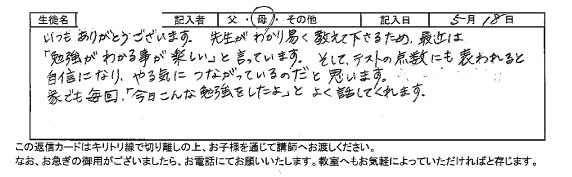 生徒名 記入者 父・母・その他 記入日 5月18日
いつもありがとうございます。先生がわかり易く教えて下さるため、最近は
「勉強がわかる事が楽しい」と言っています。そして、テストの点数にも表われると
自信になり、やる気につながっているのだと思います。
家でも毎回、「今日こんな勉強をしたよ」とよく話してくれます。
この返信カードはキリトリ線で切り離しの上、お子様を通じて講師へお渡しください。
なお、お急ぎの御用がございましたら、お電話にてお願いいたします。教室へもお気軽によっていただければと存じます。